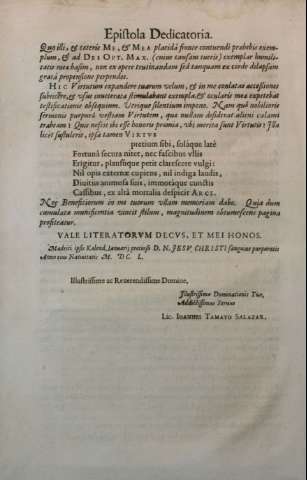 Epistola Dedicatoria.
Quo illi, & cæteris ME, & MEA placidâ fronte contuendi præbebis exem-
plum, & ad DEI OPT. MAX. (cuius tantum tueris) exemplar humili-
tatis mea hæsim, non ex opere trutinandam sed tanquam ex corde dilapsam
gratâ propensione perpendes.
HIC Virtutum expandere tuarum velum, & in me conlatas accessiones
subire, & usu contestata stimulabant exempla, & ocularis mea expetebat
testificationis obsequium. Utrique silentium impono. Nam quò nobilioris
sermonis purpurâ vestiam Virtutem, quæ nullam desiderat alieni calami
trabeam? Quis nescit ibi esse honoris præmia, ubi merita sunt Virtutis? Illa
licet sustuleris, ipsa tamen VIRTVS
pretium sibi, soláque latè
Fortunâ secura nitet, nec fascibus vllis
Erigitur, plausúsque petit clarescere vulgi:
Nil opis externæ cupiens, nil indiga laudis,
Divitiis animosa suis, immotáque cunctis
Casibus, ex altâ mortalia despicit ARCE.
Nec Benefactorum in me tuorum vllam memoriam dabo. Quia dum
cumulata munificentia vincit stilum, magnitudinem obtumescens pagina
profiteatur.
VALE LITERATORVM DECVS, ET MEI HONOS.
Madriti ipsis Kalend. Ianuarij pretioso D. N. JESV CHRISTI sanguine purpuratis
Anno suæ Natiuitatis M. DC. L.
Illustrissime ac Reuerendissime Domine,
Illustrissimæ Dominationis Tuæ,
Addictissimus Seruus
Lic. IOANNES TAMAYO SALAZAR.